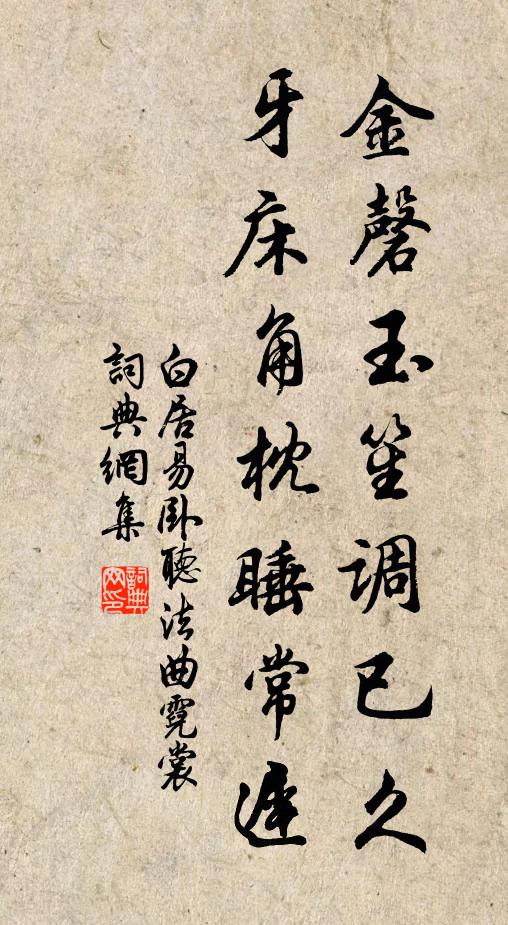 金磬玉笙调已久
牙床角枕睡常遲
白居易卧聴法曲霓裳
詞典網集
詞典
网印